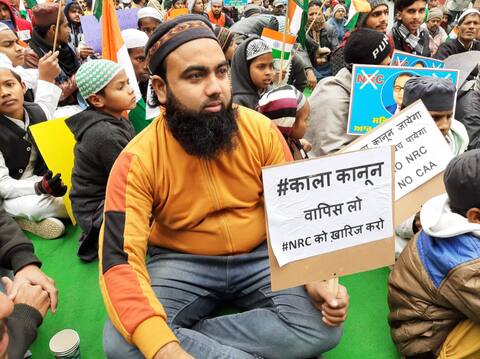 #काला कानून
वापिस लो
#NRC को ख़ारिज करो
जायेगा
पायेगा
NO NRC
NO CAA
NRC